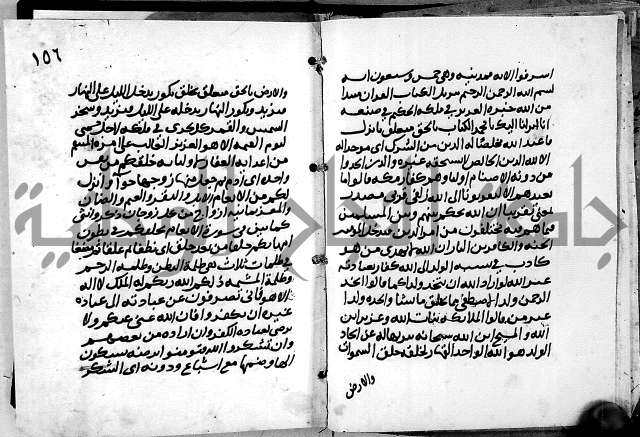 اسرفوا الاية فمدنية وهي خمس وسبعون اية
بسم الله الرحمن الرحيم تنزيل الكتاب القران مبتدا
من الله خبره العزيز في ملكه الحكيم في صنعه
انا انزلنا اليك يا محمد الكتاب بالحق متعلق بانزل
فاعبد الله مخلصا له الدين من الشرك اي موحدا له
الا لله الدين الخالص لا يستحقه غيره والذين اتخذوا
من دونه الاصنام اولياء وهم كفار مكة قالوا ما
نعبدهم الا ليقربونا الى الله زلفى قربى مصدر
بمعنى تقريبا ان الله يحكم بينهم وبين المسلمين
فيما هم فيه يختلفون من امر الدين فيدخل المؤمنين
الجنة والكافرين النار ان الله لا يهدي من هو
كاذب في نسبة الولد الى الله كفار بعبادته
غير الله لو اراد الله ان يتخذ ولدا كما قالوا اتخذ
الرحمن ولدا لاصطفى مما يخلق ما يشاء واتخذه ولدا
غير من قالوا الملائكة بنات الله وعزير ابن
الله والمسيح ابن الله سبحانه تنزيها له عن اتخاذ
الولد هو الله الواحد القهار لخلقه خلق السموات
والارض
١٥٦
والارض بالحق متعلق بخلق يكور يدخل الليل على النهار
فيزيد ويكور النهار يدخله على الليل فيزيد وسخر
الشمس والقمر كل يجري في فلكه لاجل مسمى
ليوم القيمة الا هو العزيز الغالب على امره المنتقم
من اعدائه الغفار لاوليائه خلقكم من نفس
واحدة اي ادم ثم جعل منها زوجها حوا وانزل
لكم من الانعام الابل والبقر والغنم والضان
والمعز ثمانية ازواج من كل زوجان ذكر وانثى
كما بين في سورة الانعام يخلقكم في بطون
امهاتكم خلقا من بعد خلق اي نطفا ثم علقا ثم مضغا
في ظلمات ثلاث هي ظلمة البطن وظلمة الرحم
وظلمة المشيمة ذلكم الله ربكم له الملك لا اله
الا هو فانى تصرفون عن عبادته الى عبادة
غيره ان تكفروا فان الله غني عنكم ولا
يرضى لعباده الكفر وان اراده من بعضهم
وان تشكروا الله فتؤمنوا يرضه بسكون
الها وضمها مع اشباع ودونه اي الشكر